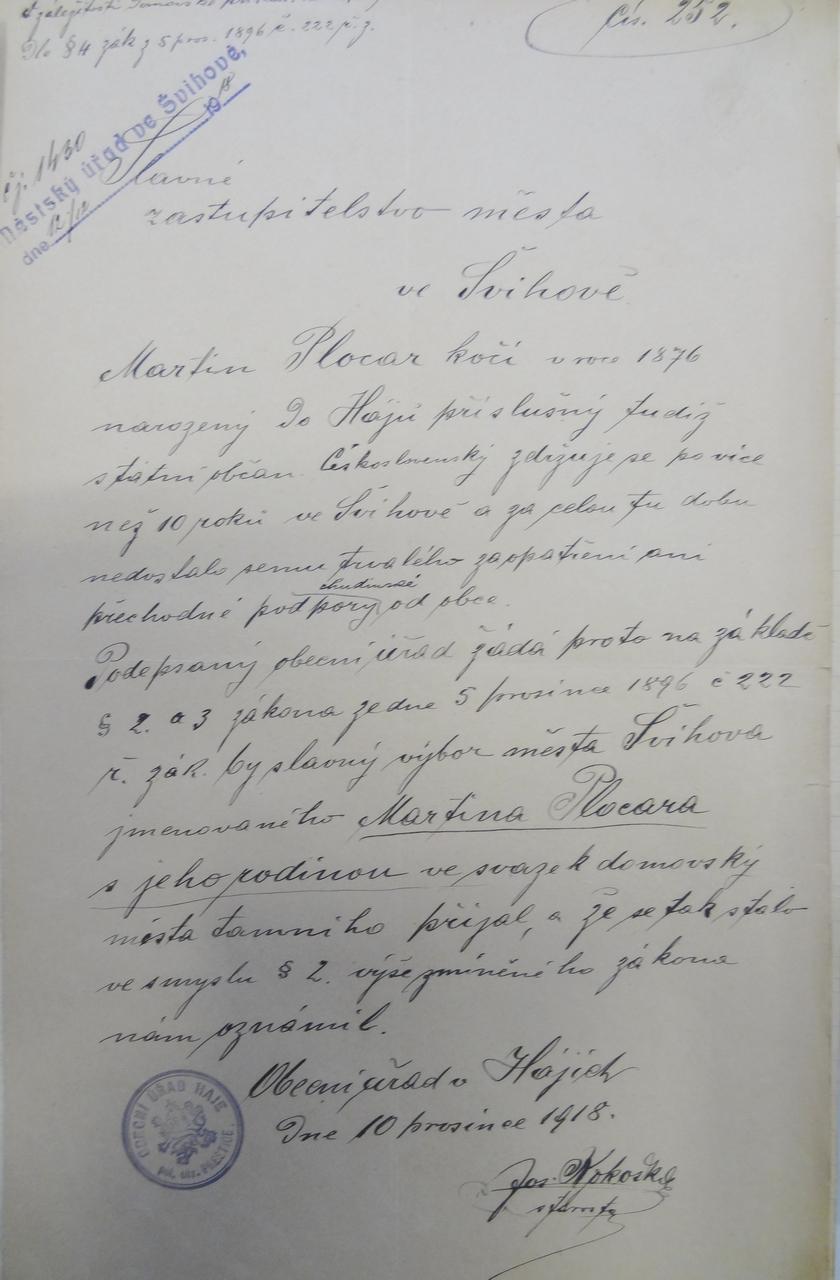 V záležitosti domovské
Dle § 4 zák z 5 pros. 1896 č. 222 ř. z.
Čís. 252.
Městský úřad ve Švihově,
dne 12/12 1918
čj. 1430
Slavné
zastupitelstvo města
ve Švihově
Martin Plocar kočí v roce 1876
narozený do Hájů příslušný tudiž
státní občan Československý zdržuje se po více
než 10 roků ve Švihově a za celou tu dobu
nedostalo se mu trvalého zaopatření ani
přechodné chudinské podpory od obce.
Podepsaný obecní úřad žádá proto na základě
§ 2. a 3 zákona ze dne 5 prosince 1896 č 222
ř. zák. by slavný výbor města Švihova
jmenovaného Martina Plocara
s jeho rodinou ve svazek domovský
města tamního přijal, a že se tak stalo
ve smyslu § 2. výše zmíněného zákona
nám oznámil.
Obecní úřad v Hájích
Dne 10 prosince 1918.
OBECNÍ ÚŘAD HÁJE
pol. okr. PŘEŠTICE.
Jos. Kokoška
starosta